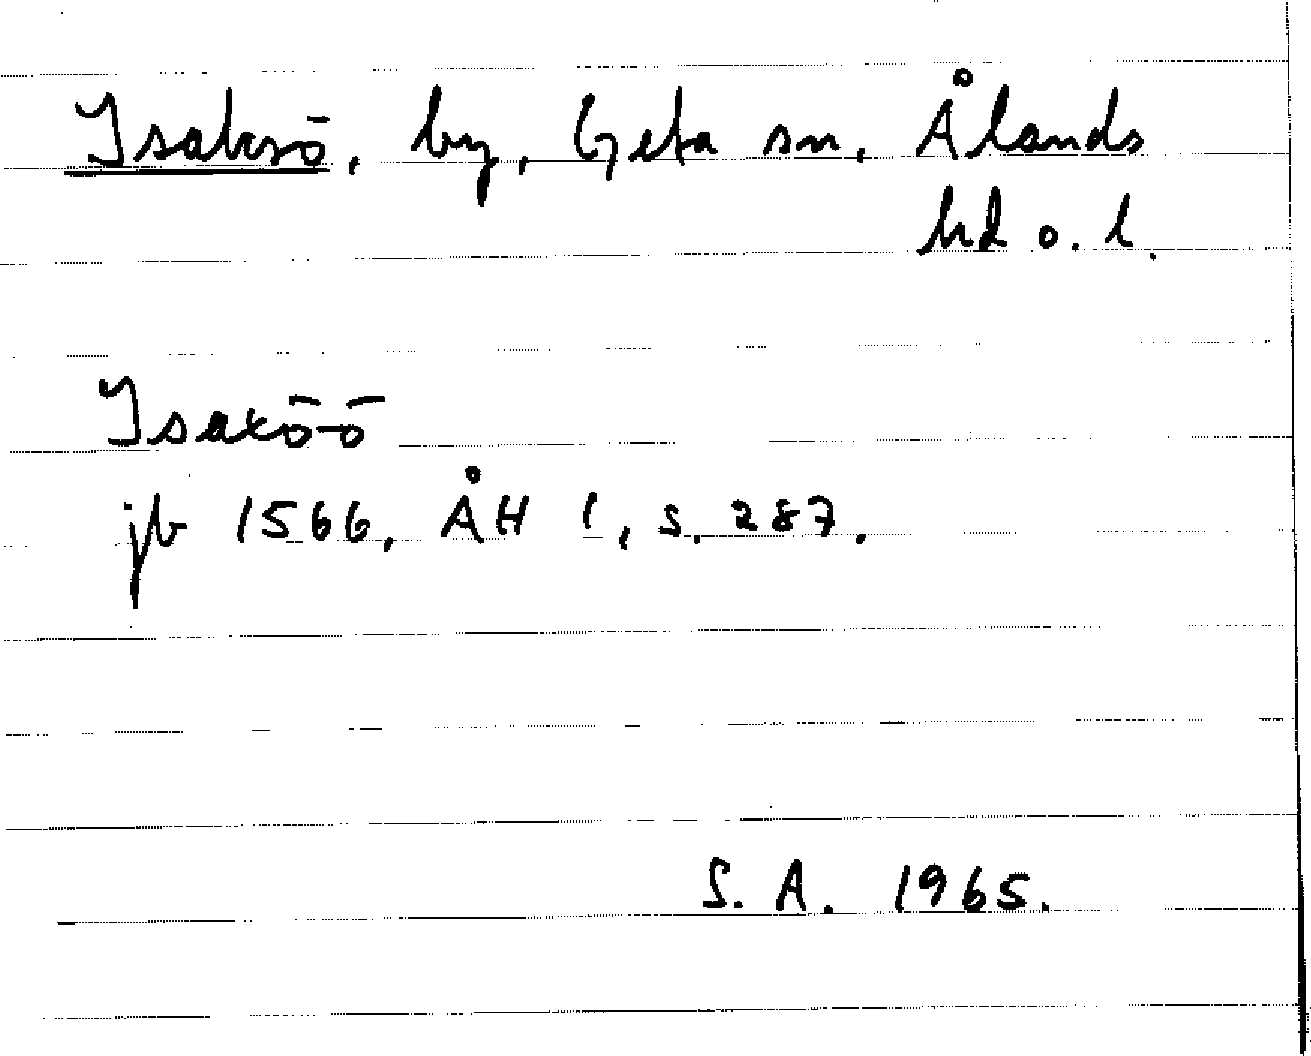 Isaksö, by, Geta sn, Ålands
hd o. l.
Isaköö
jb 1566, ÅH 1, s. 287.
S. A. 1965.